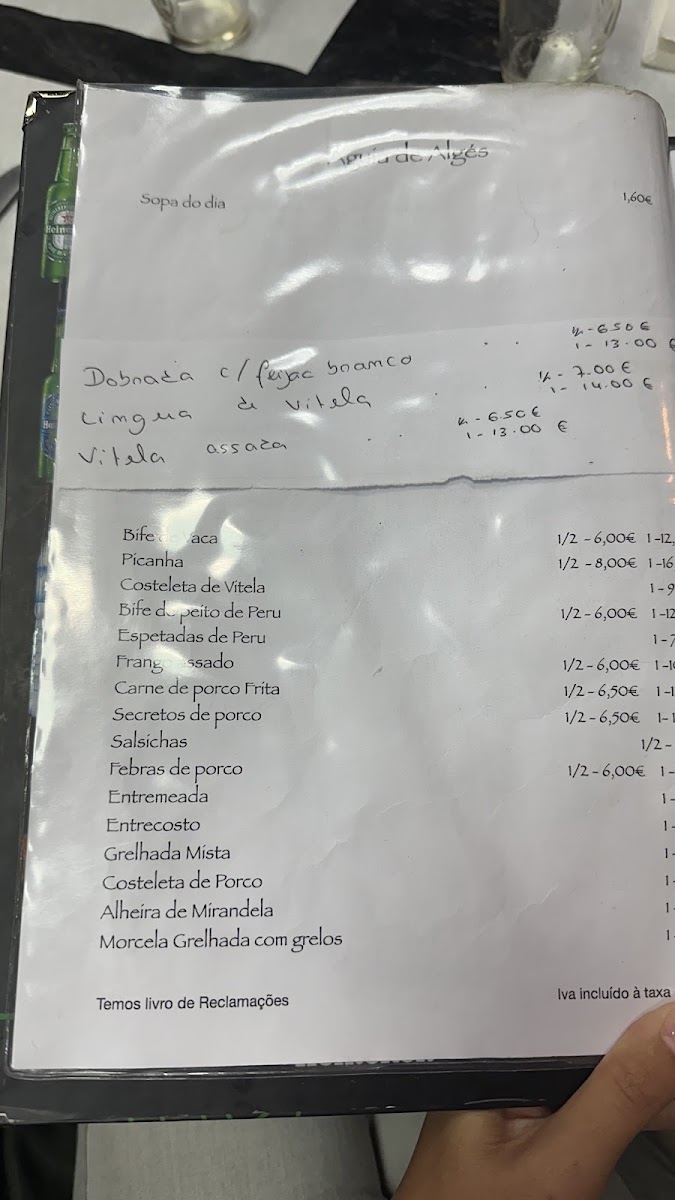 de Algés
Sopa do dia 1,60€
Dobrada c/ feijao branco ½ - 6.50 €
1 - 13.00 €
Lingua de Vitela ½ - 7.00 €
1 - 14.00 €
Vitela assada ½ - 6.50 €
1 - 13.00 €
Bife aca 1/2 - 6,00€ 1 -12,
Picanha 1/2 - 8,00€ 1 -16
Costeleta de Vitela 1 - 9
Bife de peito de Peru 1/2 - 6,00€ 1 -12
Espetadas de Peru 1 - 7
Frang ssado 1/2 - 6,00€ 1 -1
Carne de porco Frita 1/2 - 6,50€ 1 -1
Secretos de porco 1/2 - 6,50€ 1- 1
Salsichas 1/2 -
Febras de porco 1/2 - 6,00€ 1 -
Entremeada 1 -
Entrecosto 1 -
Grelhada Mista 1 -
Costeleta de Porco 1 -
Alheira de Mirandela 1 -
Morcela Grelhada com grelos 1 -
Temos livro de Reclamações Iva incluído à taxa